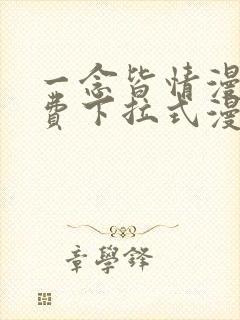 一念皆情漫
费下拉式漫
章學鋒